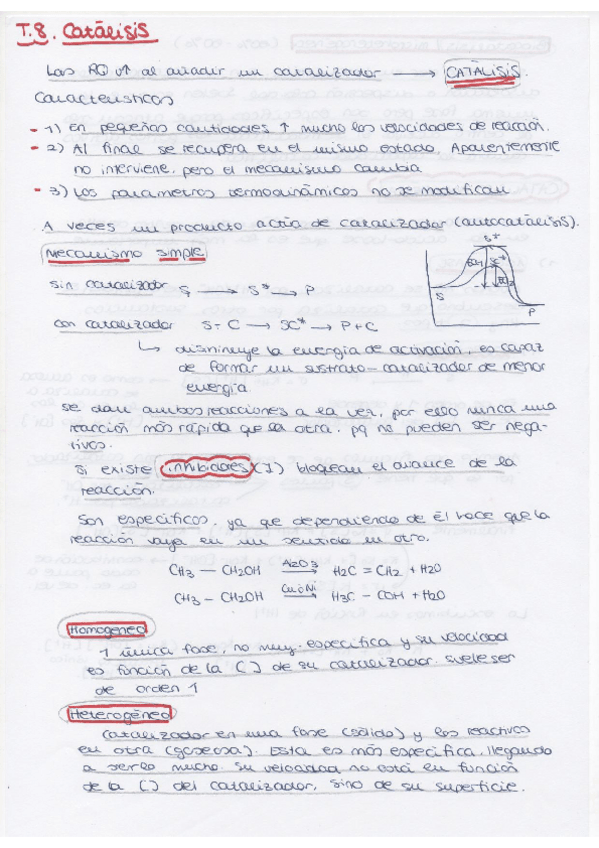 T.8. Catálisis
Las RQ v↑ al añadir un catalizador ⟶ CATÁLISIS.
Características
- 1) En pequeñas cantidades ↑ mucho las velocidades de reacción.
- 2) Al final se recupera en el mismo estado. Aparentemente
no interviene, pero el mecanismo cambia
- 3) Los parámetros termodinámicos no se modifican
A veces un producto actúa de catalizador (autocatálisis).
Mecanismo simple
Sin catalizador S ⟶ S* ⟶ P
Con catalizador S + C ⟶ SC* ⟶ P + C
S*
SC*
S
P
↳ disminuye la energía de activación, es capaz
de formar un sustrato-catalizador de menor
energía
se dan ambas reacciones a la vez, por ello nunca una
reacción más rápida que la otra. pq no pueden ser nega-
tivos.
Si existe inhibidores (I) bloquean el avance de la
reacción.
Son específicos, ya que dependiendo de él hace que la
reacción vaya en un sentido u otro.
CH3 — CH2OH ⟶ Al2O3 H2C = CH2 + H2O
CH3 — CH2OH ⟶ Cu ó Ni H3C — COH + H2O
Homogénea
1 única fase, no muy específica y su velocidad
es función de la [ ] de su catalizador. suele ser
de orden 1
Heterogénea
Catalizador en una fase (sólido) y los reactivos
en otra (gaseosa). Esta es más específica, llegando
a serlo mucho. Su velocidad no está en función
de la [ ] del catalizador, sino de su superficie.